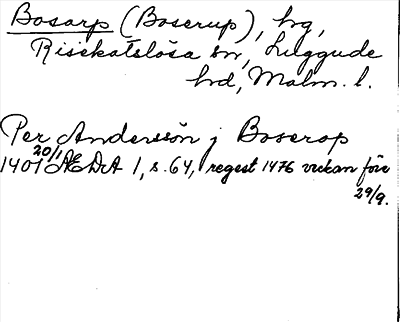 Bosarp (Boserup), hg,
Risekatslösa sn, Luggude
hd, Malm. l.
Per Andersson j Boserop
1401 20/1 ÆDA 1, s. 64, regest 1476 veckan före
29/9.